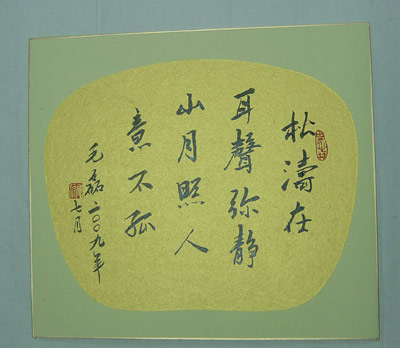 松濤在
耳聲弥静
山月照人
意不孤
毛磊二〇〇九年
七月